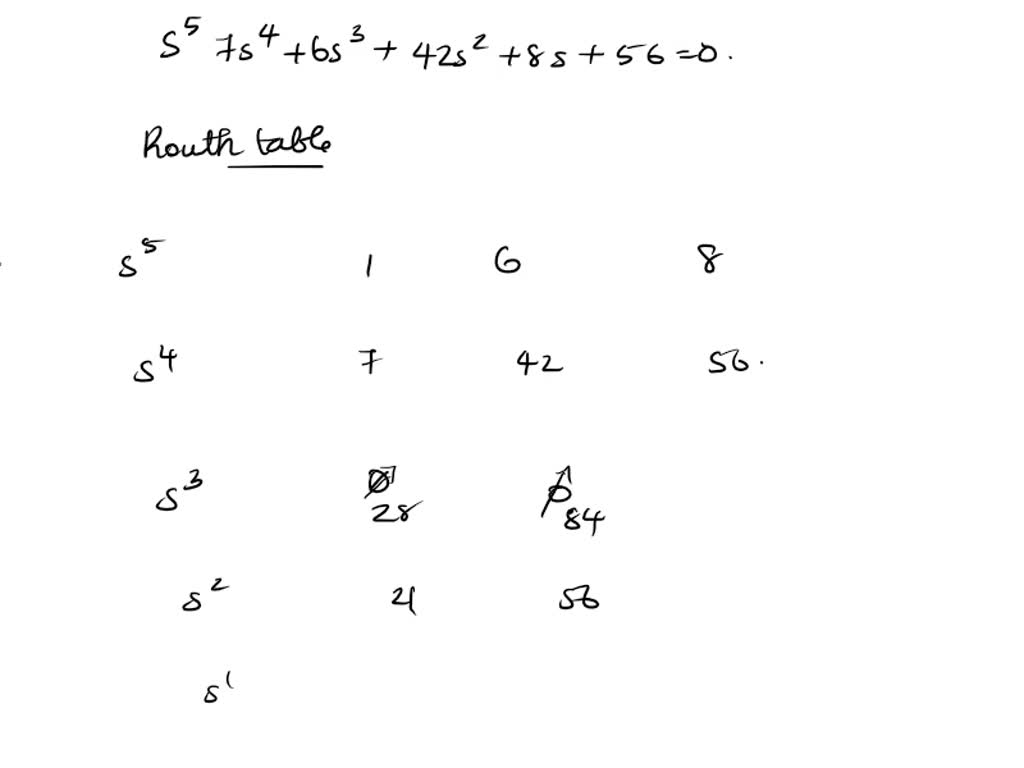 S⁵ 7s⁴ + 6s³ + 42s² + 8s + 56 = 0.
Routh table
s⁵ 1 6 8
s⁴ 7 42 56.
s³ 0 0
28 84
s² 21 56
s¹